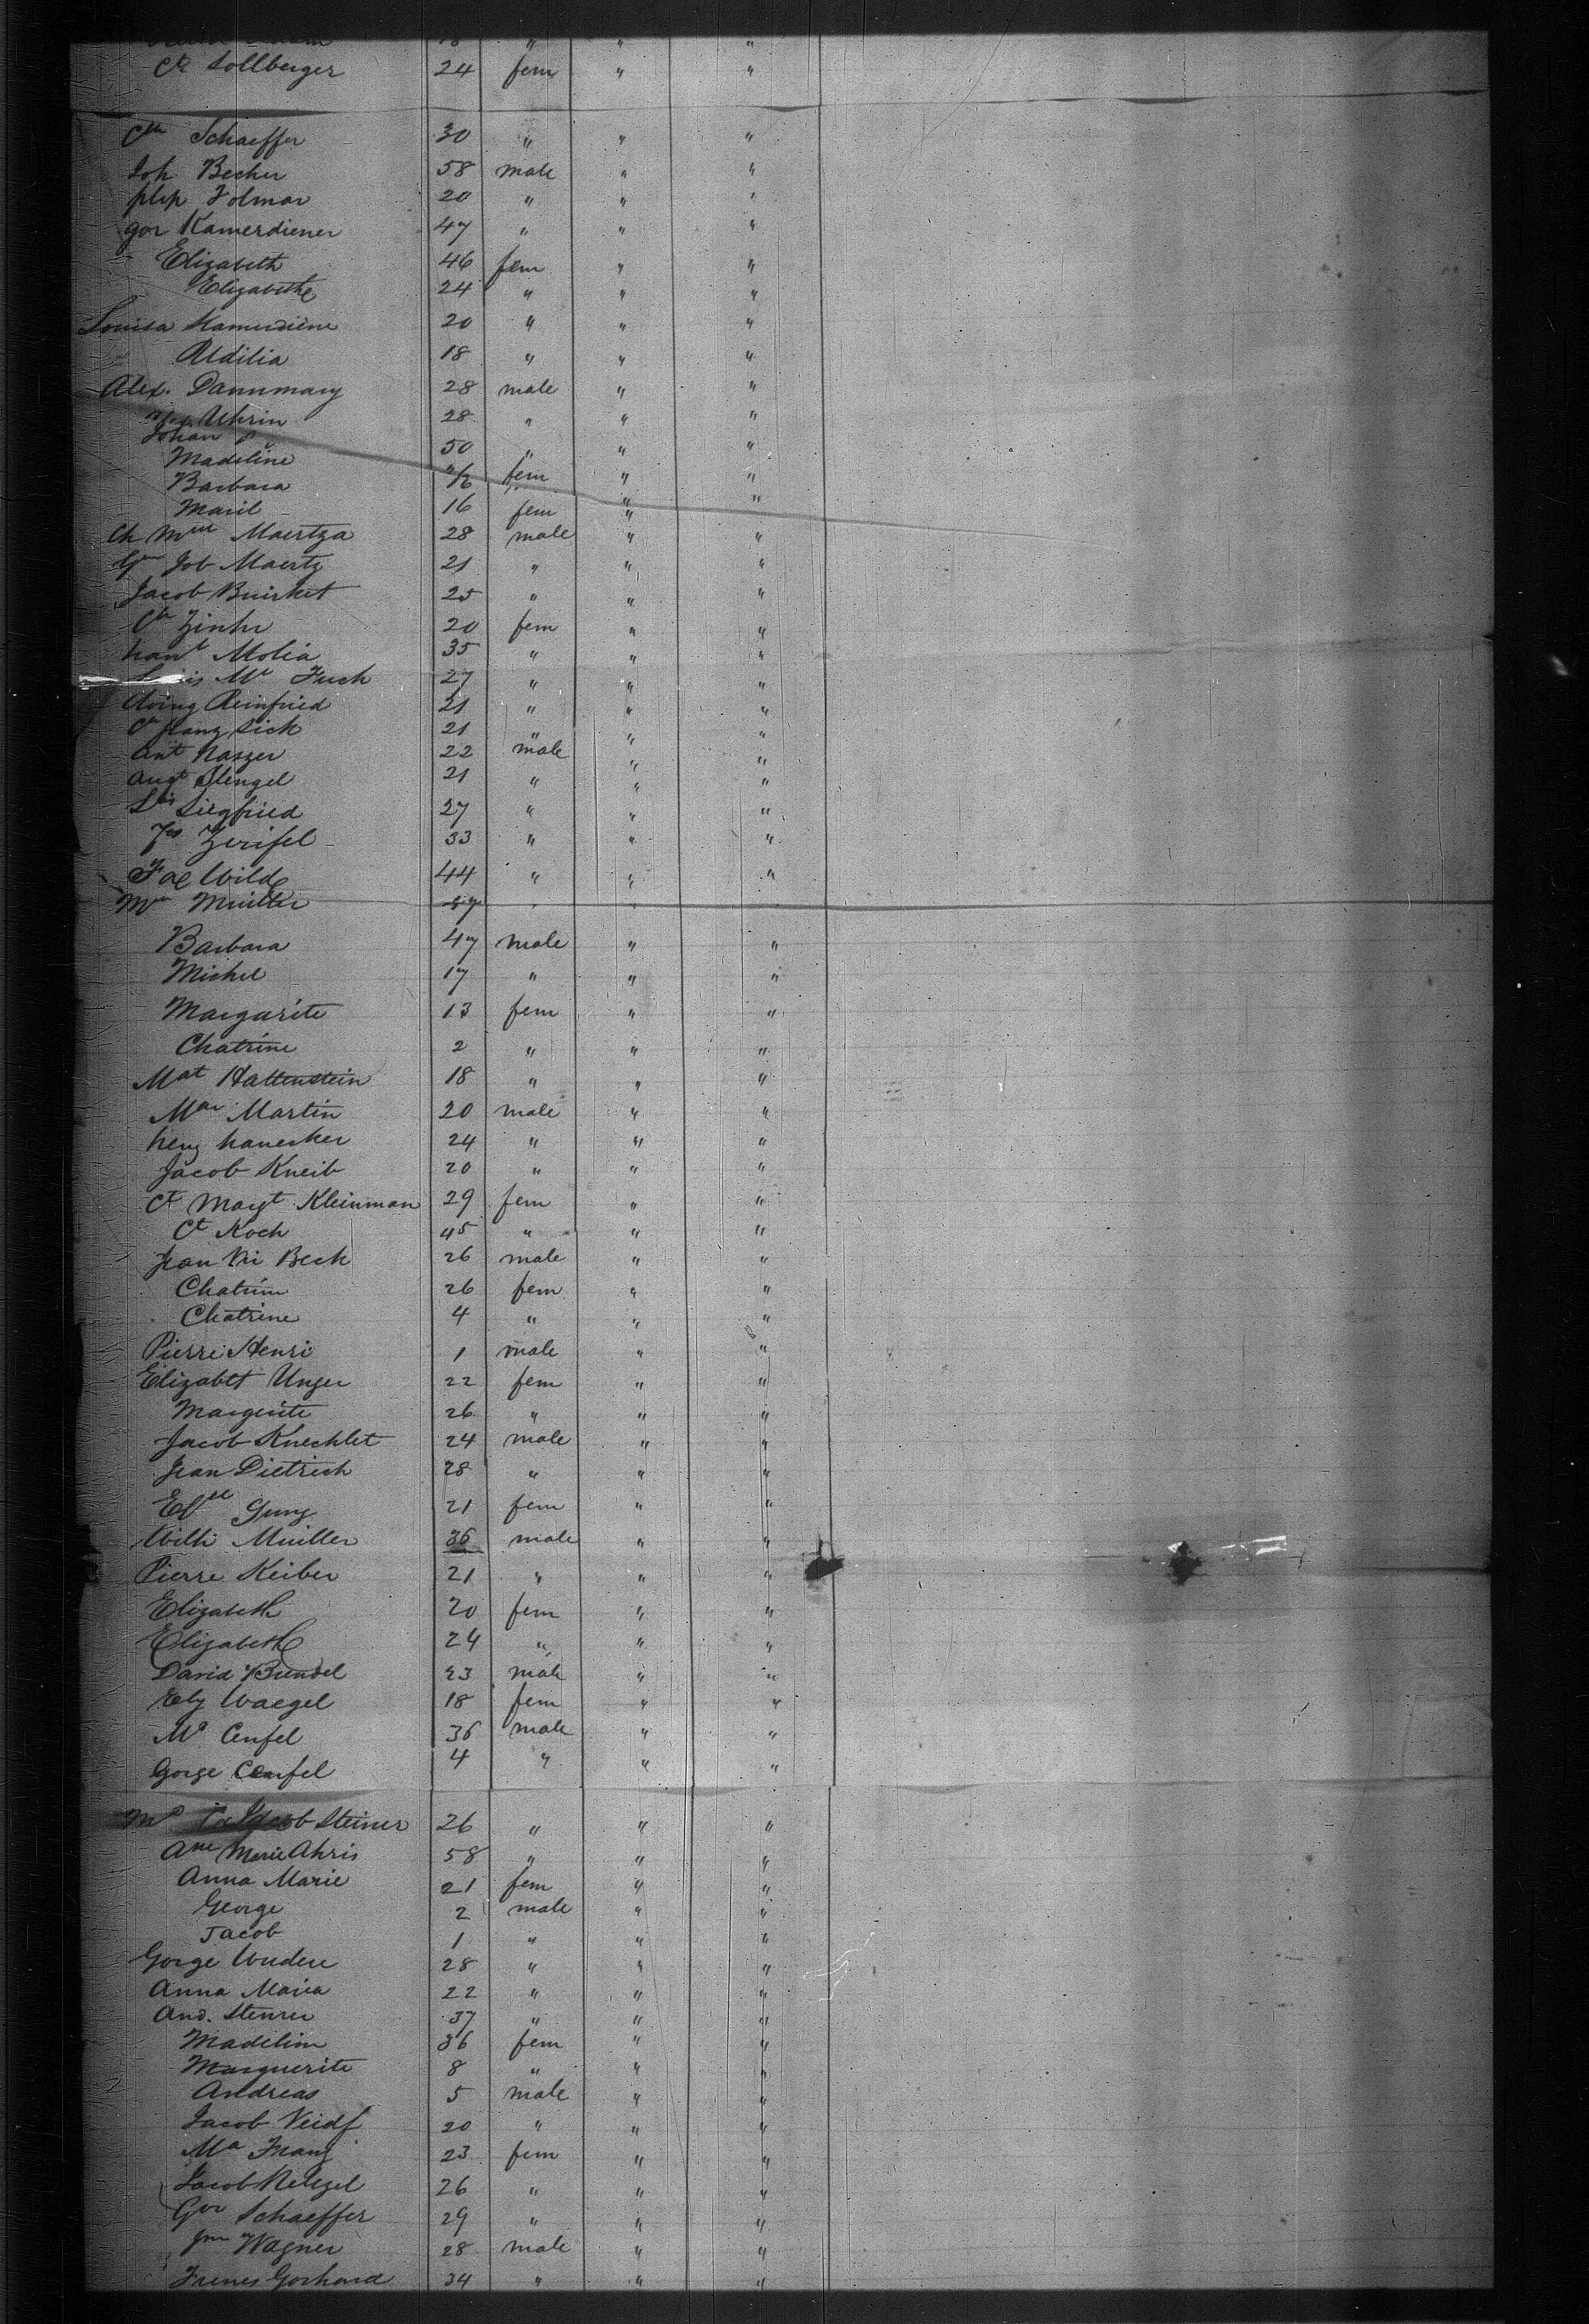 Ct Sollberger 24 fem " "
Cth Schaeffer 30 " " "
Joh Becher 58 male " "
phip Folmar 20 " " "
gor Kamerdiener 47 " " "
Elizabeth 46 fem " "
Elizabethe 24 " " "
Louisa Kamerdiene 20 " " "
Aldilia 18 " " "
Alex. Dannmary 28 male " "
Uhrin 28 " " "
Johan " 50 " " "
Madeline
Barbara fem " "
Maril 16 fem " "
Ch Maertza 28 male " "
Job Maertz 21 " " "
Jacob Buirket 25 " " "
Cth Zinhr 20 fem " "
Molia 35 " " "
Fuch 27 " " "
Reinfried 21 " " "
Ct franz Sick 21 " " "
Ant Naszer 22 male " "
Augt Stengel 21 " " "
Ls Siegfried 27 " " "
Zerifel 33 " " "
Fac Wilde 44 " " "
Muiller " "
Barbara 47 male " "
Michel 17 " " "
Margarite 13 fem " "
Chatrine 2 " " "
Mat Hattenstein 18 " " "
Mar Martin 20 male " "
heny hanecker 24 " " "
Jacob Kneib 20 " " "
Ct Margt Kleinman 29 fem " "
Ct Koch 45 " " "
Jean Ni Beck 26 male " "
Chatrin 26 fem " "
Chatrine 4 " " "
Pierre Henri 1 male " "
Elizabet Unger 22 fem " "
Margerite 26 " " "
Jacob Knechlet 24 male " "
Jean Dietrich 28 " " "
Gung 21 fem " "
Wilh Muiller 36 male " "
Pierre Keiber 21 " " "
Elizabeth 20 fem " "
Elizabeth 24 " " "
David Bundel 23 male " "
Ely Waegel 18 fem " "
Ma Cenfel 36 male " "
Gorge Cenfel 4 " " "
Jacob Steiner 26 " " "
Ane Marie Ahris 58 " " "
Anna Marie 21 fem " "
George 2 male " "
Jacob 1 " " "
Gorge Wudere 28 " " "
Anna Maria 22 " " "
And. Stenrer 37 " " "
Madelin 36 fem " "
Marguerite 8 " " "
Andreas 5 male " "
Jacob Veidf 20 " " "
Ma Franz 23 fem " "
Jacob Netzgel 26 " " "
Gor Schaeffer 29 " " "
Wagner 28 male " "
Frenes Gorhard 34 " " "